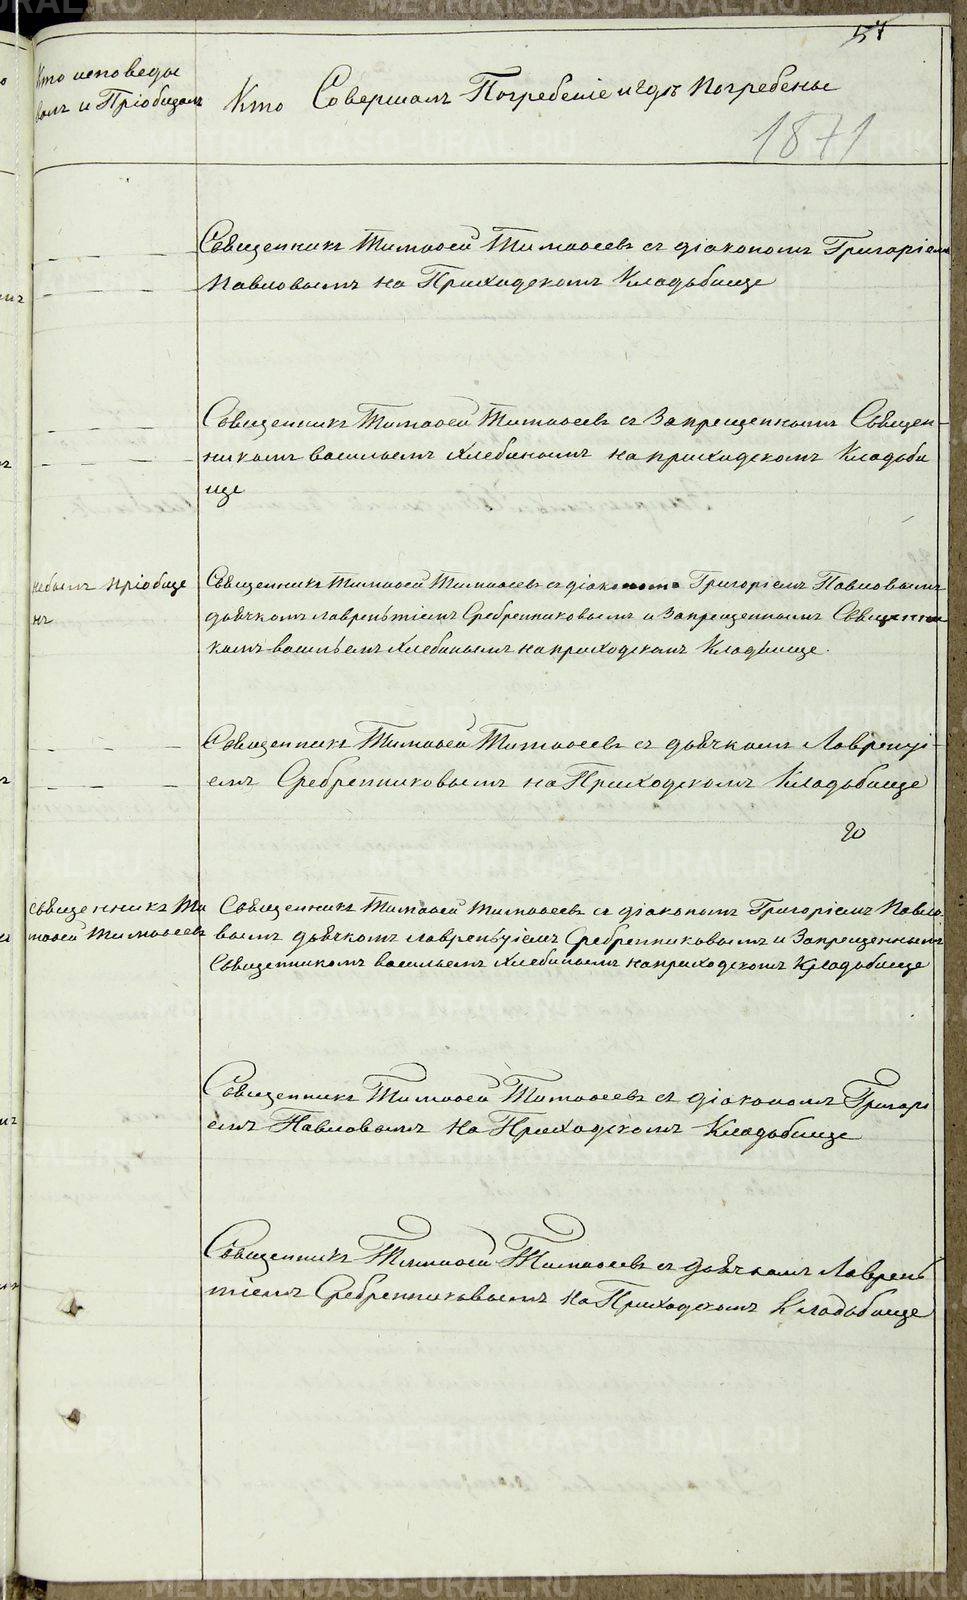 57
Кто исповеды
валъ и Пріобщалъ
Кто Совершалъ Погребеніе и гдѣ Погребены
1871
Священникъ Тимофей Тимофеевъ съ діакономъ Григоріемъ
Павловымъ на Приходскомъ Кладбище
Священникъ Тимофей Тимофеевъ съ Запрещеннымъ Священ-
никомъ васильемъ Хлебинымъ на приходскомъ Кладби
ще
небылъ пріобще
нъ
Священникъ Тимофей Тимофеевъ съ діакономъ Григоріемъ Павловымъ
дьячкомъ лаврентіемъ Сребренниковымъ и Запрещеннымъ Священни
комъ васильемъ Хлебинымъ на приходскомъ Кладбище.
Священникъ Тимофей Тимофеевъ съ дьячкомъ Лавренті-
емъ Сребренниковымъ на Приходскомъ Кладбище
20
Священникъ Ти
мофей Тимофеевъ
Священникъ Тимофей Тимофеевъ съ діакономъ Григоріемъ Павло
вымъ дьячкомъ лаврентіемъ Сребренниковымъ и Запрещеннымъ
Священникомъ васильемъ Хлебинымъ на приходскомъ Кладбище
Священникъ Тимофей Тимофеевъ съ діакономъ Григорі
емъ Павловымъ на Приходскомъ Кладбище
Священникъ Тимофей Тимофеевъ съ дьячкомъ Лаврень
тіемъ Сребренниковымъ на Приходскомъ Кладбище
METRIKI.GASO-URAL.RU